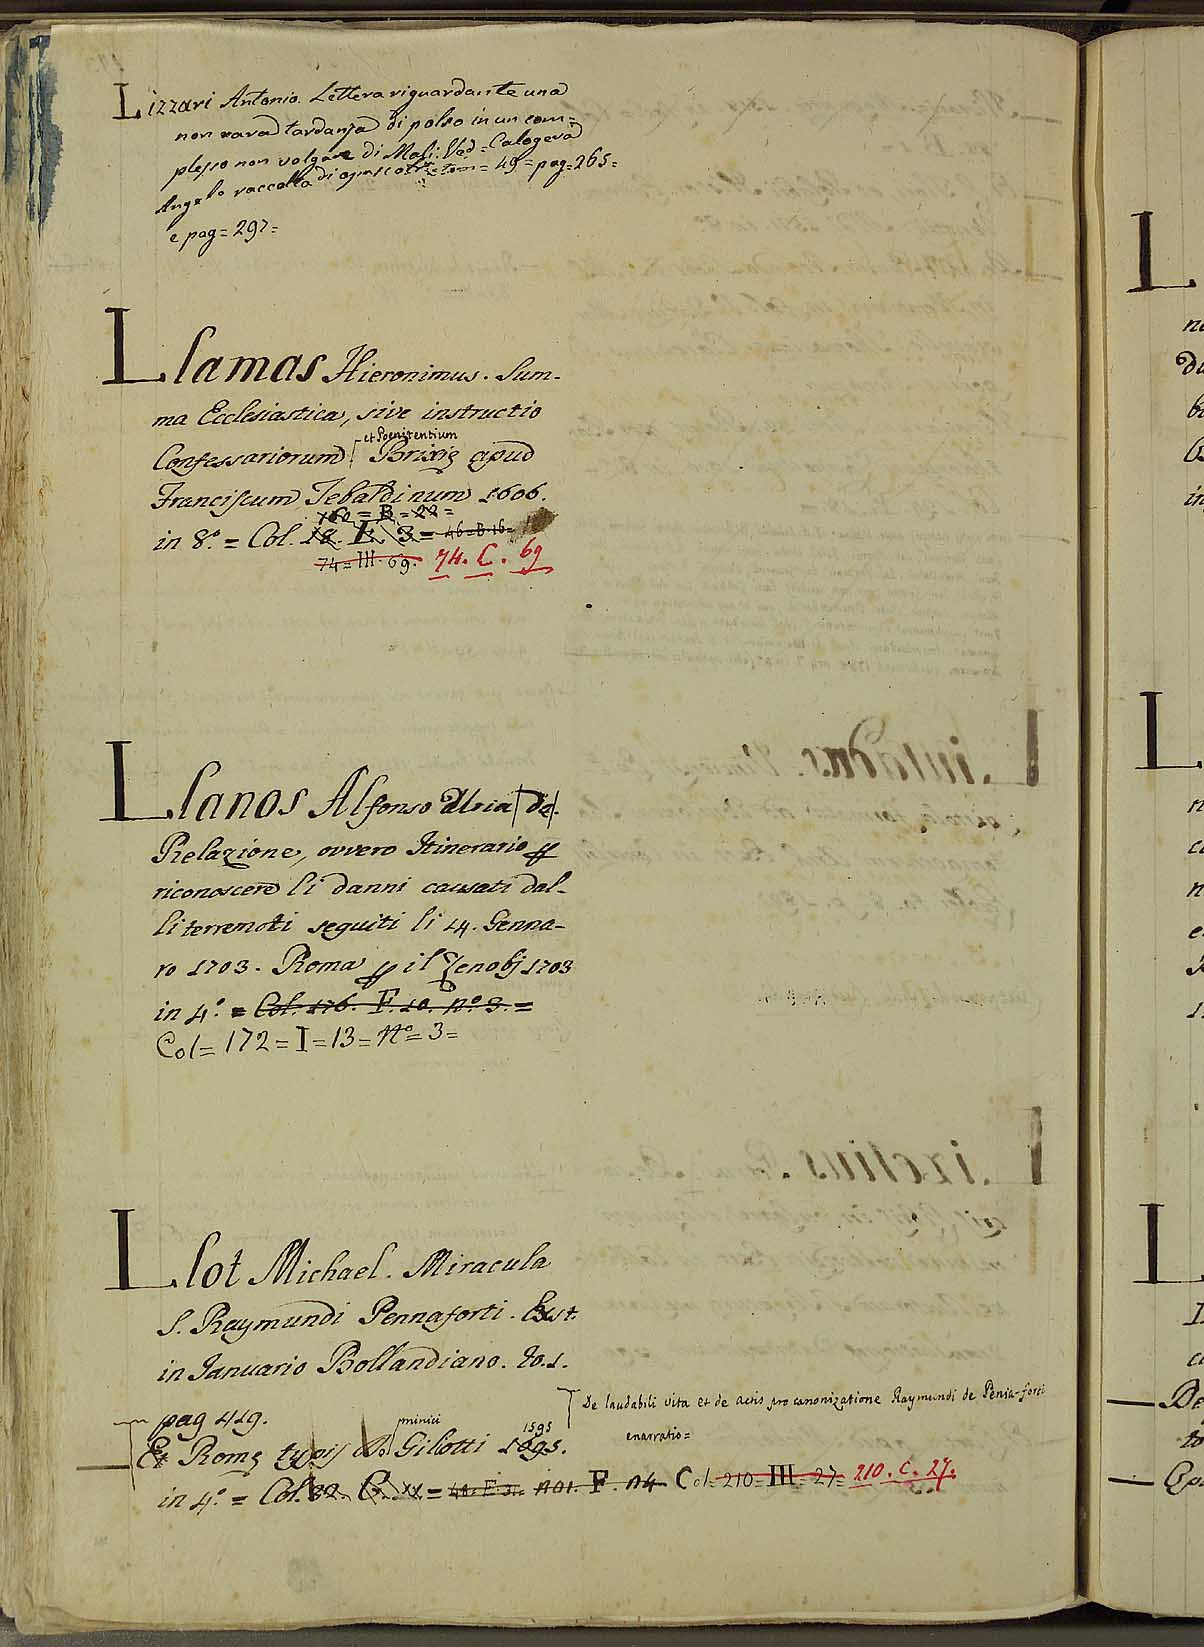 Lizzari Antonio. Lettera riguardante una
non rara tardanza di polso in un com=
plesso non volgare di Mali. Ved = Calogerà
Angelo raccolta di opuscoli = tom = 49 = pag = 265 =
e pag = 297 =
Llamas Hieronimus. Sum-
ma Ecclesiastica, sive instructio
Confessariorum et Poenitentium Brixię apud
Franciscum Tebaldinum 1606.
160 = B = 22 =
in 8.° = Col. 18. L. 3 = 46 = B. 16 =
74 = III. 69. 74. C. 69
Llanos Alfonso Uria de.
Relazione, ovvero Itinerario
riconoscere li danni causati dal-
li terremoti seguiti li 14. Genna-
ro 1703. Roma il Zenobj 1703
in 4.° = Col. 176. F. 10. n.° 3. =
Col = 172 = I = 13 = N.° = 3 =
Llot Michael. Miracula
S. Raymundi Pennaforti. Exst.
in Ianuario Bollandiano. to. 1.
pag 419.
De laudabili vita et de actis pro canonizatione Raymundi de Penia-forti
enarratio =
Et Romę typis Dominici Gilotti 1595.
in 4.° = Col. 32. G. xx = F. F. 14 Col = 210 = III = 27 = 210. C. 27.